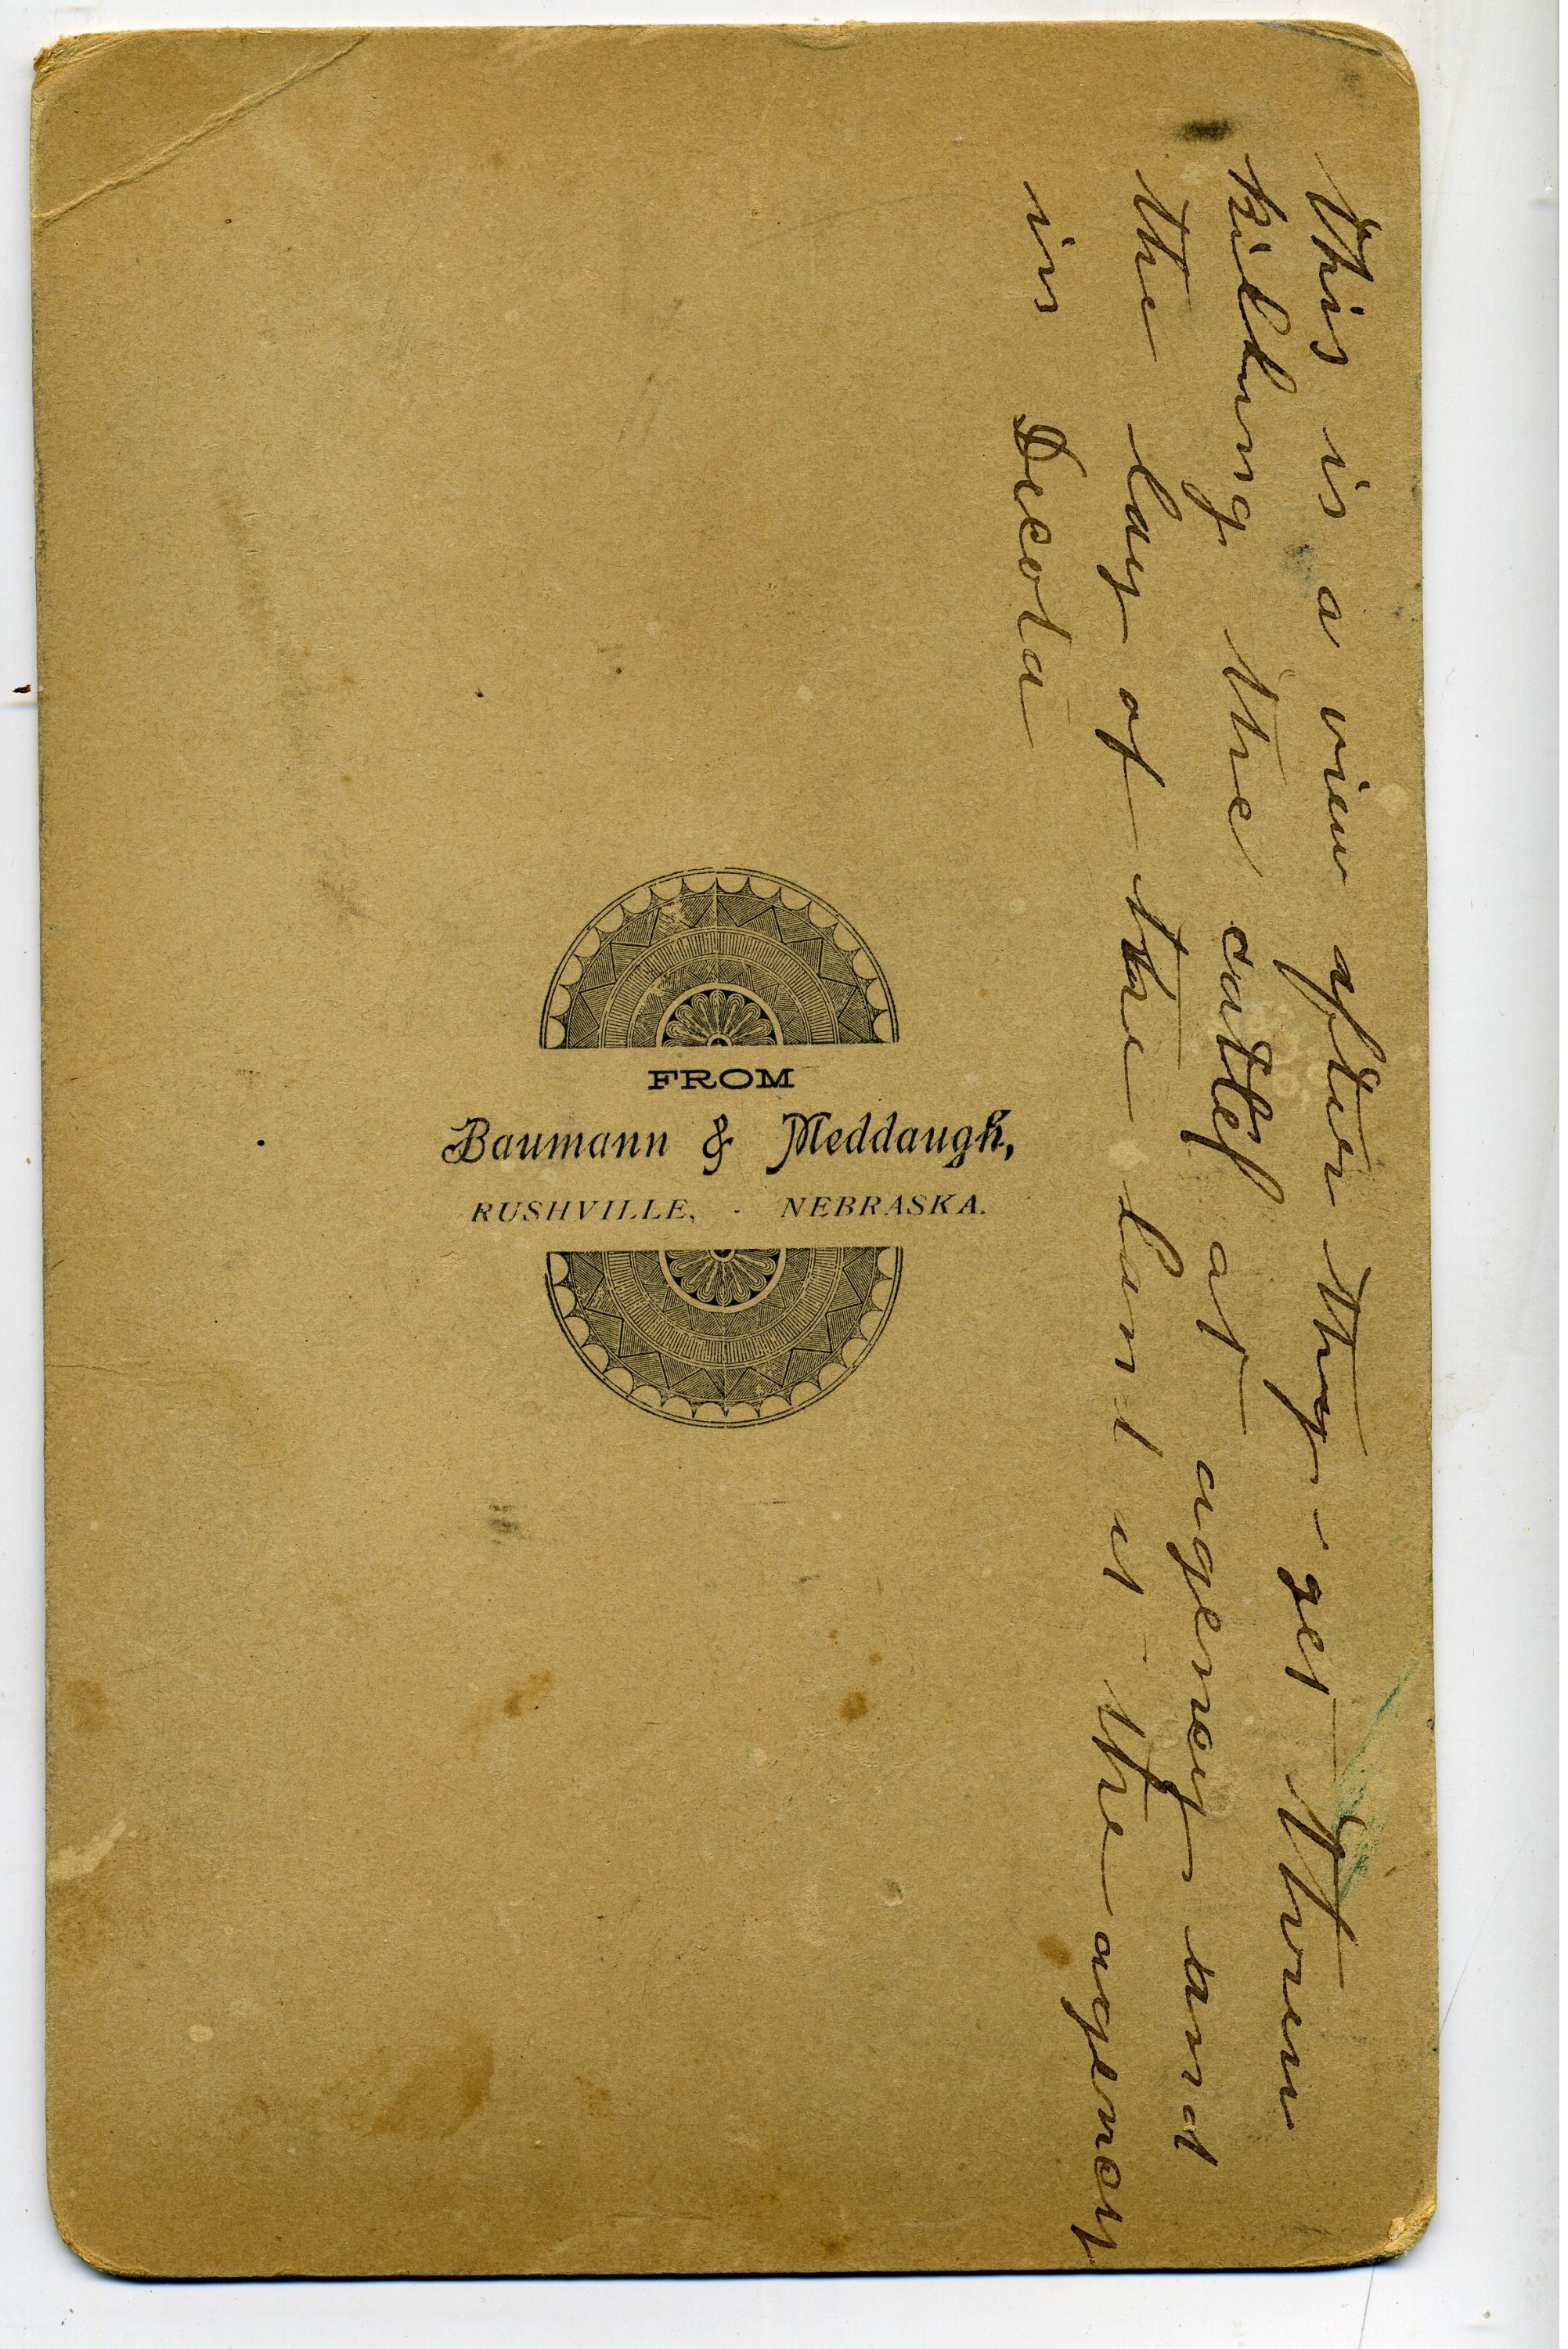 This is a view after they get threw
killing the cattel at agency and
the lay of the land at the agency
in Decota
FROM
Baumann & Meddaugh,
RUSHVILLE, - NEBRASKA.